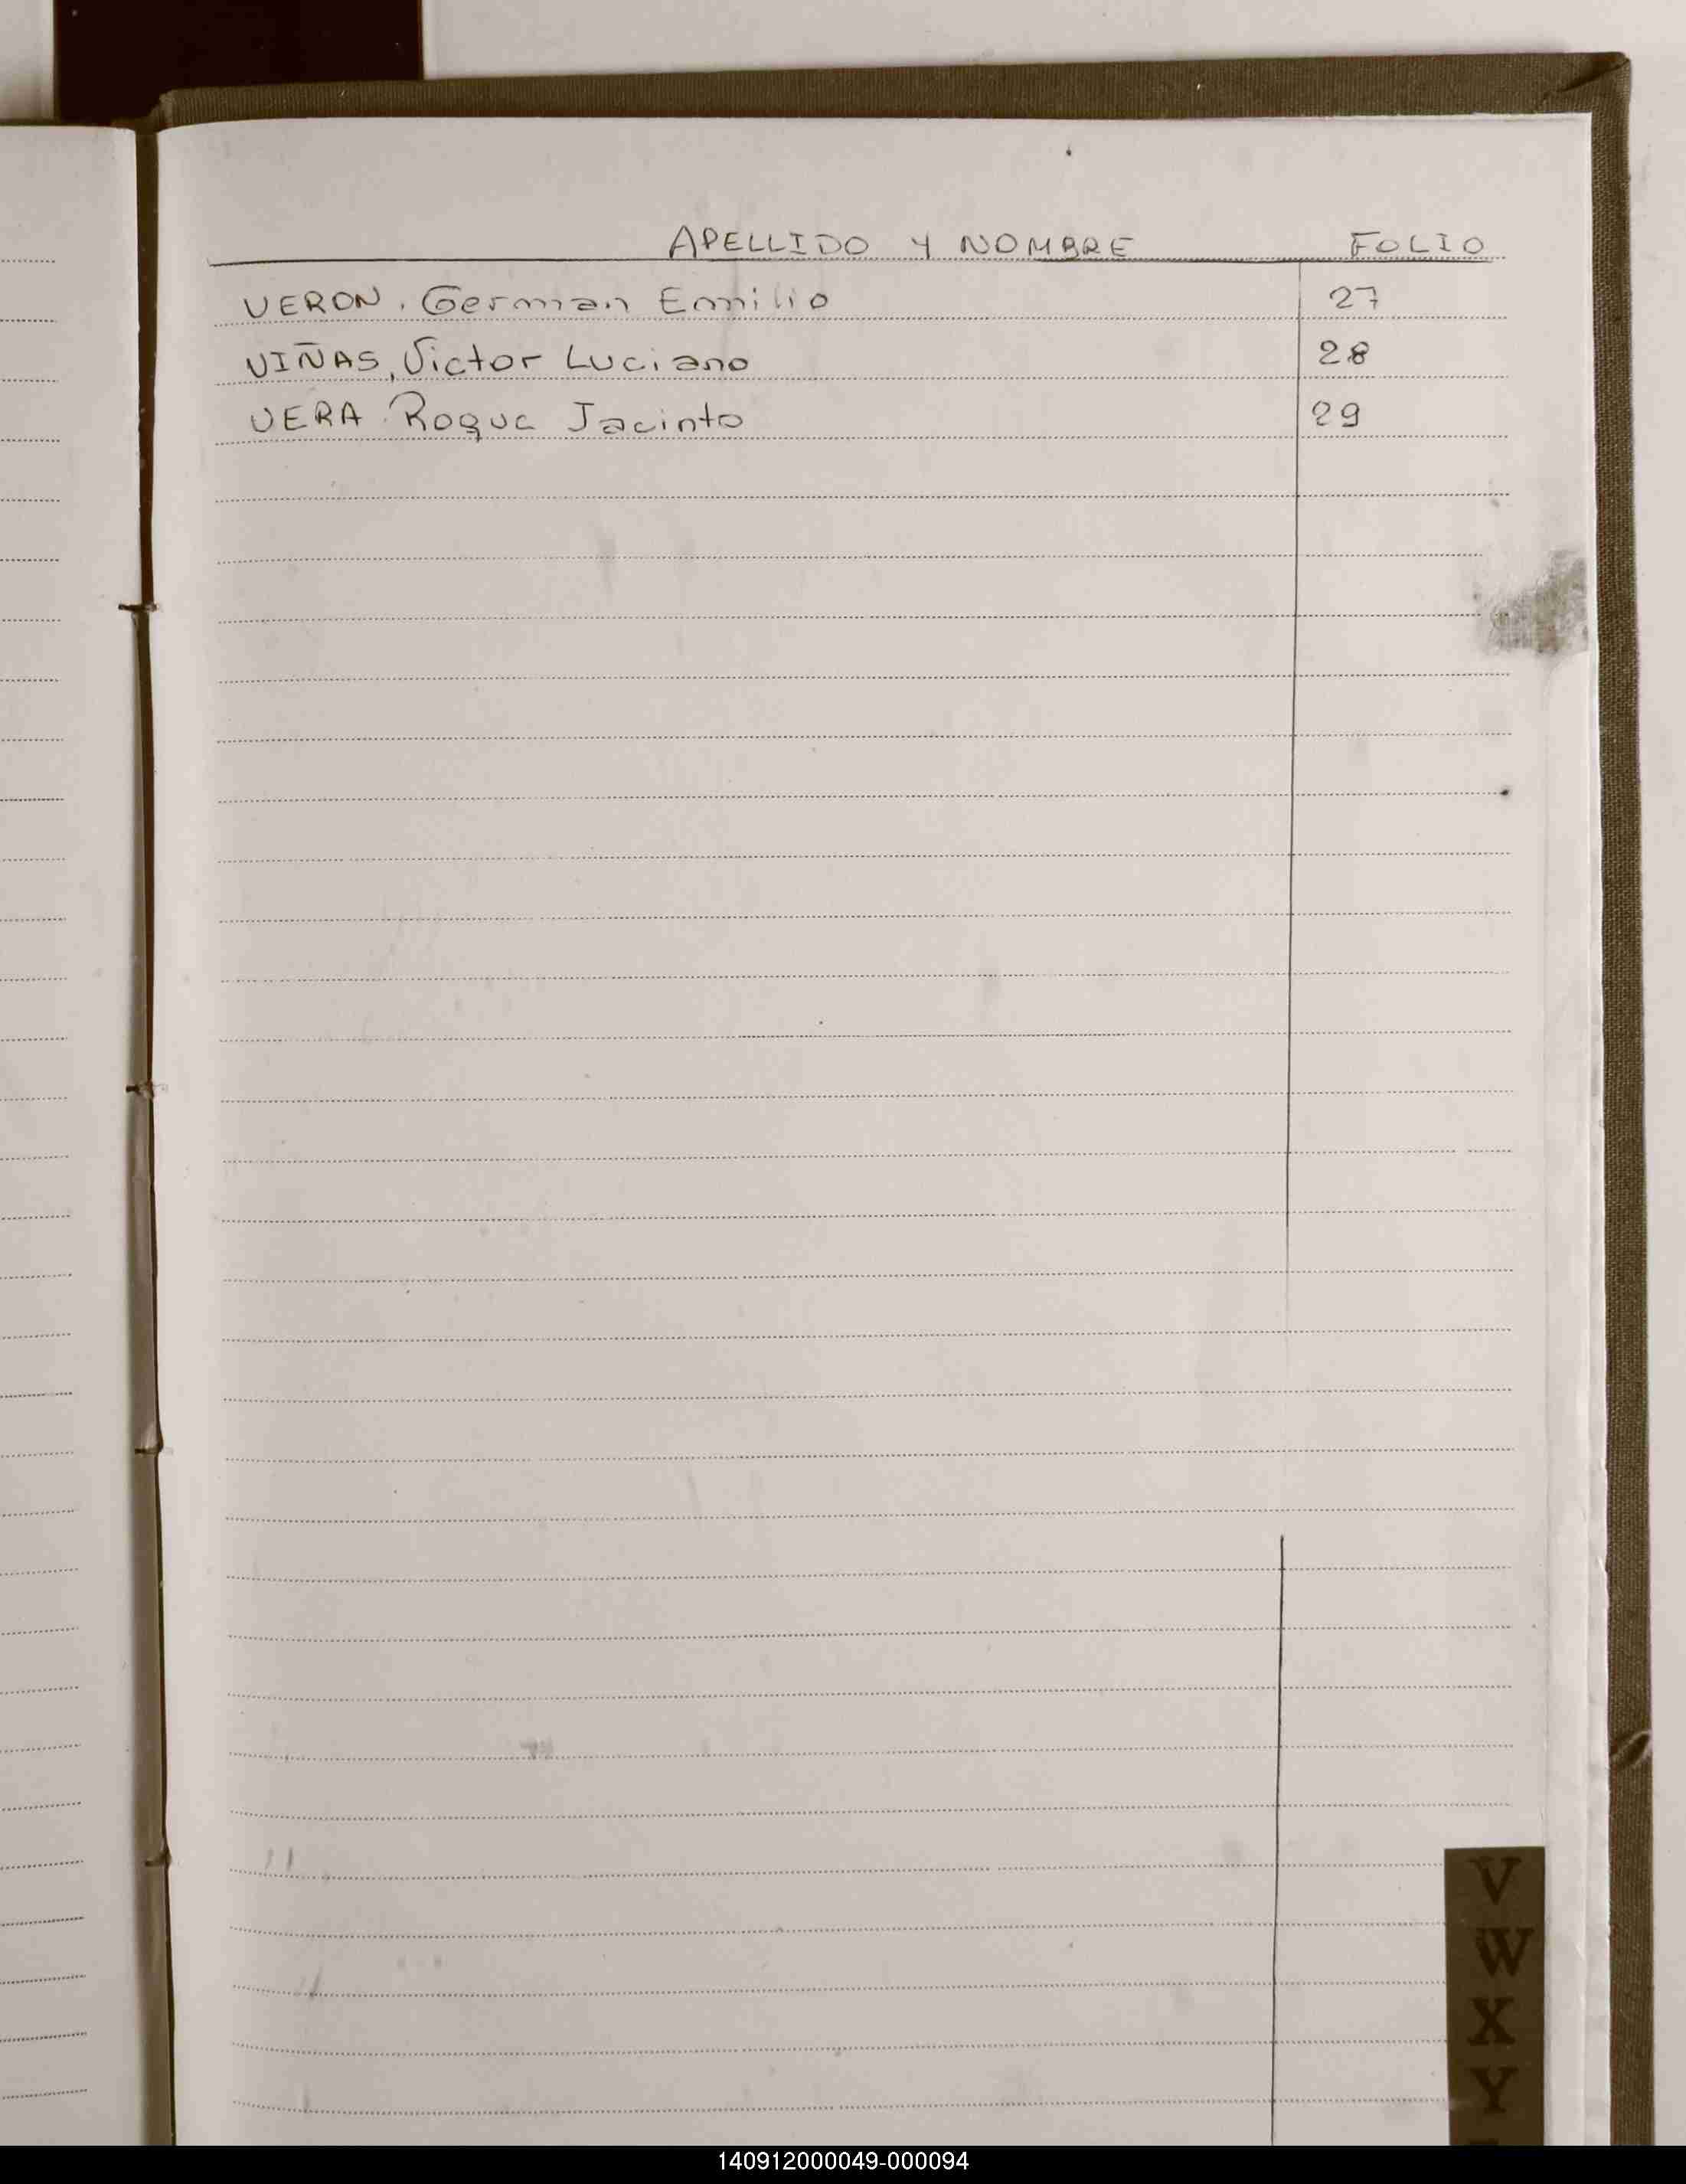 APELLIDO Y NOMBRE FOLIO
VERON, German Emilio 27
VIÑAS, Victor Luciano 28
VERA Roque Jacinto 29
V
W
X
Y
140912000049-000094